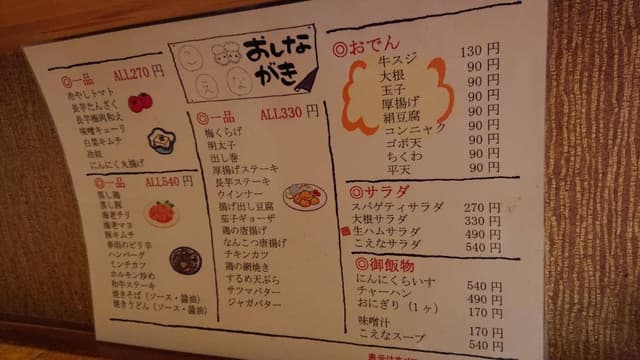 おしな
がき
◎一品 ALL270円
冷やしトマト
長芋たんざく
長芋梅肉和え
味噌キューリ
白菜キムチ
冷奴
にんにく丸揚げ
◎一品 ALL540円
蒸し鶏
蒸し豚
海老チリ
海老マヨ
豚キムチ
ハンバーグ
ミンチカツ
ホルモン炒め
和牛ステーキ
焼きそば（ソース・醤油）
焼きうどん（ソース・醤油）
◎一品 ALL330円
梅くらげ
明太子
出し巻
厚揚げステーキ
長芋ステーキ
ウインナー
揚げ出し豆腐
茄子ギョーザ
鶏の唐揚げ
なんこつ唐揚げ
チキンカツ
鶏の網焼き
するめ天ぷら
サツマバター
ジャガバター
◎おでん
牛スジ 130円
大根 90円
玉子 90円
厚揚げ 90円
絹豆腐 90円
コンニャク 90円
ゴボ天 90円
ちくわ 90円
平天 90円
◎サラダ
スパゲティサラダ 270円
大根サラダ 330円
生ハムサラダ 490円
こえなサラダ 540円
◎御飯物
にんにくらいす 540円
チャーハン 490円
おにぎり（1ヶ） 170円
味噌汁 170円
こえなスープ 540円